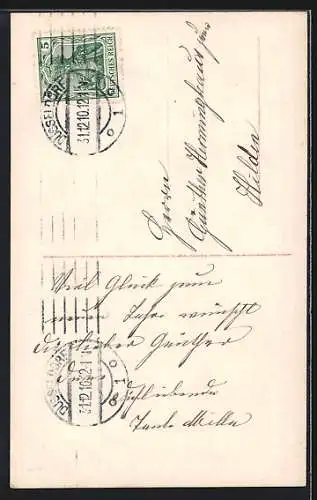 5
DEUTSCHES REICH
DÜSSELDORF
31.12.10.12-1
1
Herrn
Günther
Hilden
Viel Glück zum
neuen Jahr wünscht
dir lieber Günther
deine
dich liebende
Tante Milla
DÜSSELDORF
31.12.10.12-1
1